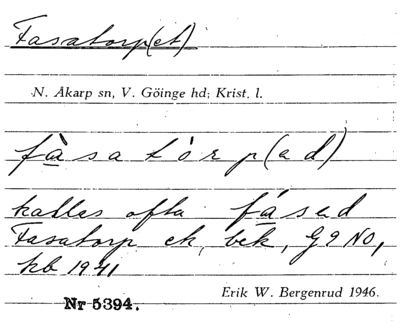 Fasatorp(et)
N. Åkarp sn, V. Göinge hd; Krist. l.
fàsatòrp(ad)
kallas ofta fásad
Fasatorp ek, bek, G9 NO,
kb 1941
Nr 5394.
Erik W. Bergenrud 1946.